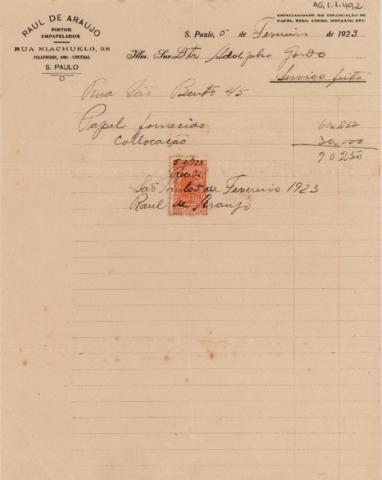 AG.1.1.492
RAUL DE ARAUJO
PINTOR
EMPAPELADOR
RUA RIACHUELO, 38
CENTRAL
S. PAULO
ESPECIALIDADE EM COLLOCAÇÃO DE
S. Paulo, 5 de Fevereiro de 1923
Illm. Snr. Dr. Adolpho Gordo
Serviço feito
Rua São Bento 45
Papel fornecido 60,250
Collocação 30,000
90250
São Paulo 5 de Fevereiro 1923
Raul de Araujo